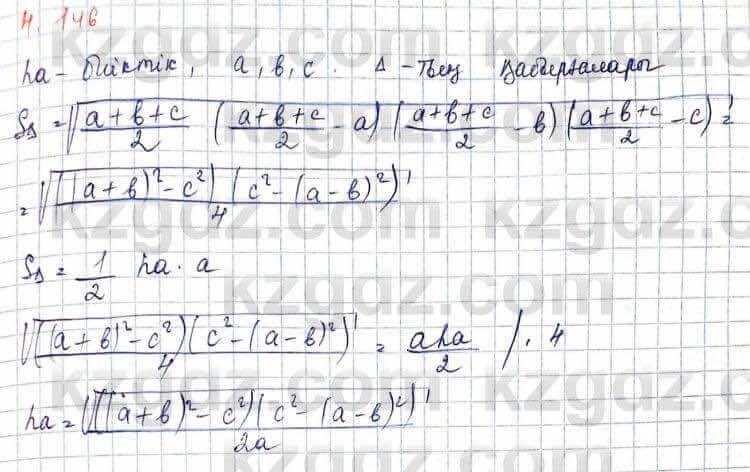 4.146
ha - биіктік, a, в, с. Δ - тың қабырғалары
S_Δ = √((a+в+c)/2 ((a+в+c)/2 - a)((a+в+c)/2 - в)((a+в+c)/2 - c)) =
= √(((a+в)² - c²)(c² - (a-в)²))/4
S_Δ = 1/2 ha · a
√(((a+в)² - c²)(c² - (a-в)²))/4 = aha/2 / · 4
ha = √(((a+в)² - c²)(c² - (a-в)²))/2a
kzgdz.com